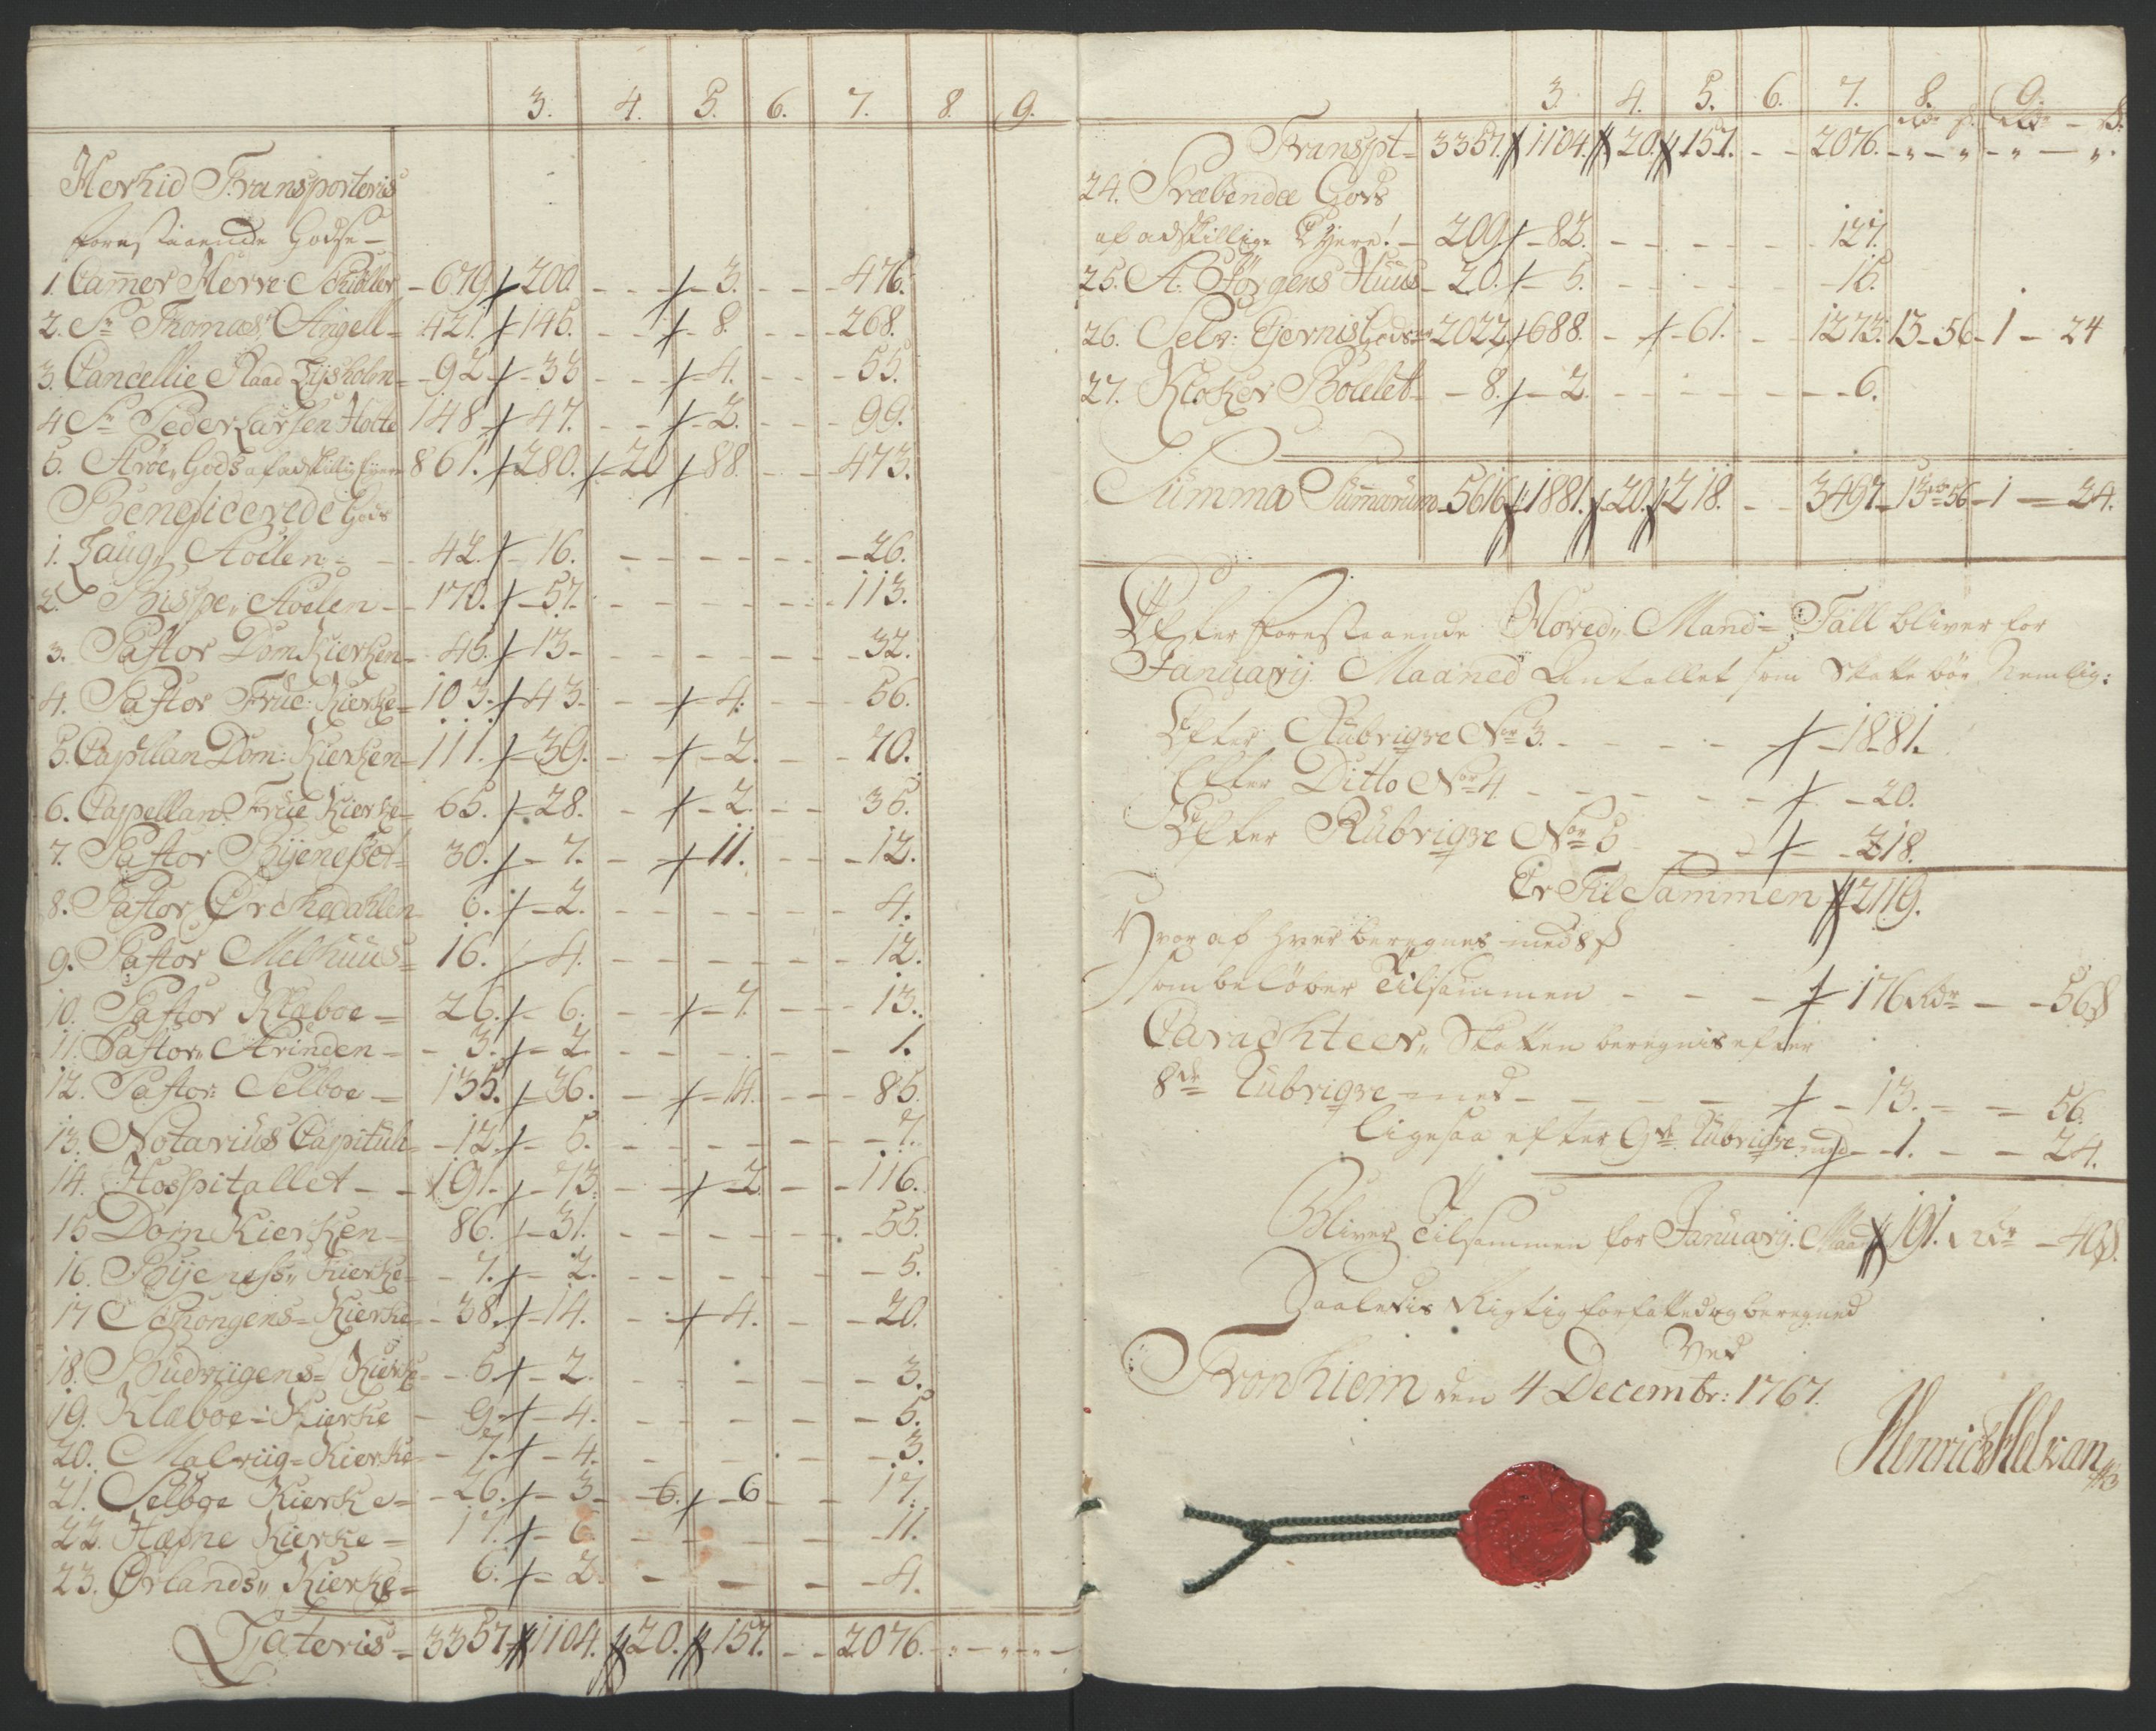 3. 4. 5. 6. 7. 8. 9.
Herhid Transporteris
forestaaende Godse -
1. Cammer Herre Schøller - 679. 200 - - - 3. - - - 476.
2. Sr Thomas Angell - 421. 145. - - - 8. - - - 268.
3. Cancellie Raad Lysholm - 92 - 33 - - - 4. - - - 55.
4 Sr Peder Larsen Hotte 148 - 47. - - - 2. - - - 99.
5. Roe, Gods af adskillig Eyere 861. 280. 20 88. - - 473.
Beneficerede Gods
1. Laug, Stoelen - 42. - 16. - - - - - 26.
2. Bispe, Stoelen - 170. - 57. - - - - - 113.
3. Pastor Dom Kierken - 45. - 13 - - - - - 32.
4. Pastor Frue: Kierke - 103. 43. - - 4. - - 56.
5. Capellan Dom: Kierken - 111. - 39. - - 2. - - 70.
6. Cappellan Frue Kierke - 65. - 28. - - 2. - - 35.
7. Pastor Byenesset - 30. - 7. - 11. - - 12.
8. Pastor Orchedahlen 6. - 2. - - - - - 4.
9. Pastor Melhuus - 16. - 4. - - - - - 12.
10. Pastor Klæboe - 26. - 6. - - 7. - - 13.
11. Pastor, Strinden - 3. - 2. - - - - - 1.
12. Pastor: Selboe - 135. - 36. - - 14. - - 85.
13. Notarius Capituli - 12. - 5. - - - - - 7.
14. Hospitallet - - 191. - 73. - - 2. - - 116.
15 Dom Kierken - 86. - 31. - - - - - 55.
16. Byeness, Kierke - 7. - 2. - - - - - 5.
17 Schongens - Kierke - 38. - 14. - - 4. - - 20.
18. Budvigens - Kierke - 5 - 2. - - - - - 3.
19. Klæboe - Kierke - 9. - 4. - - - - - 5.
20. Malviig - Kierke - 7. - 4. - - - - - 3.
21. Selboe Kierke - 26. - 3 - 6. - 6 - - 17.
22. Hæfne Kierke - 17. - 6 - - - - - 11.
23. Ørlands, Kierke - 6. - 2. - - - - - 4.
Lateris - 3357. 1104. 20. 157. - - 2076. - - - -
3. 4. 5. 6. 7. 8. 9.
rdr s. rdr - s.
Transpt - 3357. 1104. 20. 157. - - 2076. - " - " - " - ".
24. Præbendæ Gods
af adskillige Eyere! - 209 - 82. - - - - - 127.
25. St. Jørgens Huus - 20. - 5. - - - - - 15.
26. Selv: Eyernis Gods 2022 688. - - 61. - - 1273. 13 - 56 - 1 - 24
27. Kloker Bolelet - 8. - 2. - - - - - 6.
Summa Summarum - 5616 1881. 20. 218. - - 3497 - 13 rdr 56 - 1 - 24.
Efter forestaaende Hoved, Mand - Tall bliver for
Januarij Maaned Antallet som Skatte bør Nemlig:
Efter Rubriqve No 3. - - - 1881.
Efter Ditto No 4 - - - 20.
Efter Rubriqve No 5 - - 218.
Er Til Sammen 2119.
Hvor af hver beregnes med 8 s
som beløber Tilsammen - - - 176 rdr - - 56 s
Carachteer, Skatten beregnis efter
8de Rubriqve med - - - - 13. - - 56.
ligesaa efter 9de Rubriqve med - 1. - - 24.
Bliver Tilsammen for Januarij. Maan 191. rdr - 40 s.
Saaledis Rigtig forfatted og beregned
Ved
Tronhiem den 4 Decembr: 1767.
Henrich Helkan